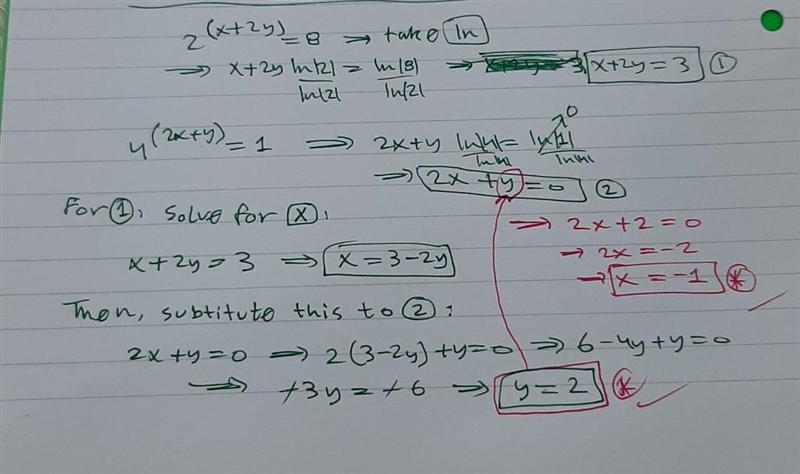 2^(x+2y) = 8 → take ln
⇒ x+2y ln|2|/ln|2| = ln|8|/ln|2| ⇒ x+2y = 3 ①
4^(2x+y) = 1 ⇒ 2x+y ln|4|/ln|4| = ln|1|/ln|4| 0
⇒ 2x+y = 0 ②
For ①: solve for x:
⇒ 2x+2=0
x+2y=3 ⇒ x=3-2y
→ 2x=-2
→ x=-1 *
Then, subtitute this to ②:
2x+y=0 ⇒ 2(3-2y)+y=0 ⇒ 6-4y+y=0
⇒ -3y=-6 ⇒ y=2 *